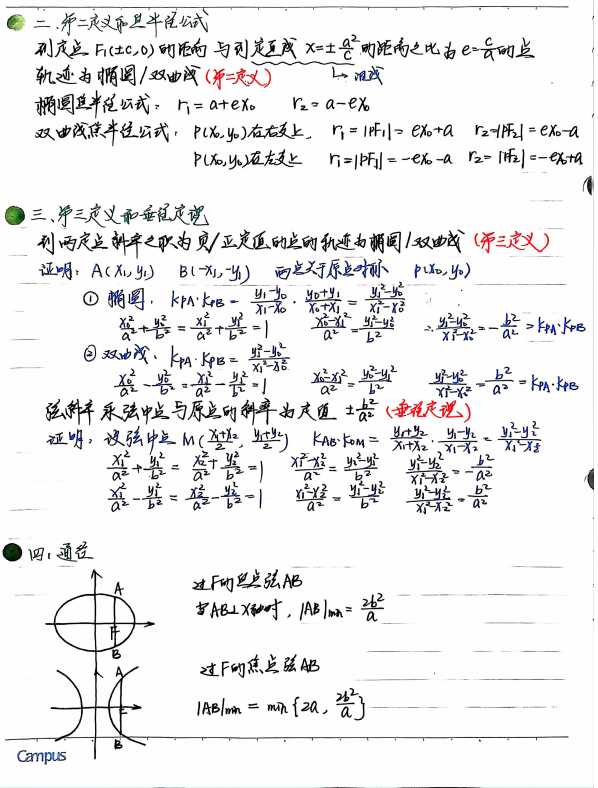 二、第二定义和焦半径公式
到定点 F₁(±c,0) 的距离与到定直线 x=±a²/c 的距离之比为 e=c/a 的点
轨迹为椭圆/双曲线 (第二定义) ↳ 准线
椭圆焦半径公式: r₁=a+ex₀ r₂=a-ex₀
双曲线焦半径公式: P(x₀,y₀)在右支上, r₁=|PF₁|=ex₀+a r₂=|PF₂|=ex₀-a
P(x₀,y₀)在左支上 r₁=|PF₁|=-ex₀-a r₂=|PF₂|=-ex₀+a
三、第三定义和垂径定理
到两定点斜率之积为负/正定值的点的轨迹为椭圆/双曲线 (第三定义)
证明: A(x₁,y₁) B(-x₁,-y₁) 两点关于原点对称 P(x₀,y₀)
① 椭圆. K_PA·K_PB = (y₁-y₀)/(x₁-x₀)·(y₀+y₁)/(x₀+x₁) = (y₁²-y₀²)/(x₁²-x₀²)
x₀²/a²+y₀²/b² = x₁²/a²+y₁²/b² = 1 (x₀²-x₁²)/a² = (y₁²-y₀²)/b² ∴ (y₁²-y₀²)/(x₁²-x₀²) = -b²/a² = K_PA·K_PB
② 双曲线. K_PA·K_PB = (y₁²-y₀²)/(x₁²-x₀²)
x₀²/a²-y₀²/b² = x₁²/a²-y₁²/b² = 1 (x₀²-x₁²)/a² = (y₀²-y₁²)/b² (y₁²-y₀²)/(x₁²-x₀²) = b²/a² = K_PA·K_PB
弦斜率乘弦中点与原点的斜率为定值 ±b²/a² (垂径定理)
证明: 设弦中点 M((x₁+x₂)/2, (y₁+y₂)/2) K_AB·K_OM = (y₁+y₂)/(x₁+x₂)·(y₁-y₂)/(x₁-x₂) = (y₁²-y₂²)/(x₁²-x₂²)
x₁²/a²+y₁²/b² = x₂²/a²+y₂²/b² = 1 (x₁²-x₂²)/a² = (y₂²-y₁²)/b² (y₁²-y₂²)/(x₁²-x₂²) = -b²/a²
x₁²/a²-y₁²/b² = x₂²/a²-y₂²/b² = 1 (x₁²-x₂²)/a² = (y₁²-y₂²)/b² (y₁²-y₂²)/(x₁²-x₂²) = b²/a²
四: 通径
A
F
B
过F的焦点弦AB
当AB⊥x轴时, |AB|min = 2b²/a
A
F
B
过F的焦点弦AB
|AB|min = min{2a, 2b²/a}
Campus